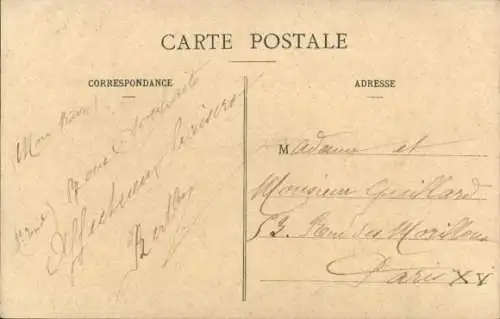 CARTE POSTALE
CORRESPONDANCE
Bons souhaits
Affectueux baisers
Berthe
ADRESSE
Madame et
Monsieur Guillard
52 Rue des Morillons
Paris XV